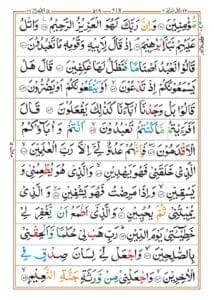 مُّؤْمِنِيْنَ ۝ وَاِنَّ رَبَّكَ لَهُوَ الْعَزِيْزُ الرَّحِيْمُ ۝ وَاتْلُ
عَلَيْهِمْ نَبَاَ اِبْرٰهِيْمَ ۝ اِذْ قَالَ لِاَبِيْهِ وَقَوْمِهٖ مَا تَعْبُدُوْنَ ۝
قَالُوْا نَعْبُدُ اَصْنَامًا فَنَظَلُّ لَهَا عٰكِفِيْنَ ۝ قَالَ هَلْ
يَسْمَعُوْنَكُمْ اِذْ تَدْعُوْنَ ۝ اَوْ يَنْفَعُوْنَكُمْ اَوْ يَضُرُّوْنَ ۝
قَالُوْا بَلْ وَجَدْنَاۤ اٰبَآءَنَا كَذٰلِكَ يَفْعَلُوْنَ ۝ قَالَ
اَفَرَءَيْتُمْ مَّا كُنْتُمْ تَعْبُدُوْنَ ۝ اَنْتُمْ وَاٰبَآؤُكُمُ
الْاَقْدَمُوْنَ ۝ فَاِنَّهُمْ عَدُوٌّ لِّيْۤ اِلَّا رَبَّ الْعٰلَمِيْنَ ۝
الَّذِيْ خَلَقَنِيْ فَهُوَ يَهْدِيْنِ ۝ وَالَّذِيْ هُوَ يُطْعِمُنِيْ
وَيَسْقِيْنِ ۝ وَاِذَا مَرِضْتُ فَهُوَ يَشْفِيْنِ ۝ وَالَّذِيْ
يُمِيْتُنِيْ ثُمَّ يُحْيِيْنِ ۝ وَالَّذِيْۤ اَطْمَعُ اَنْ يَّغْفِرَ لِيْ
خَطِيْٓئَتِيْ يَوْمَ الدِّيْنِ ۝ رَبِّ هَبْ لِيْ حُكْمًا وَّاَلْحِقْنِيْ
بِالصّٰلِحِيْنَ ۝ وَاجْعَلْ لِّيْ لِسَانَ صِدْقٍ فِي
الْاٰخِرِيْنَ ۝ وَاجْعَلْنِيْ مِنْ وَّرَثَةِ جَنَّةِ النَّعِيْمِ ۝